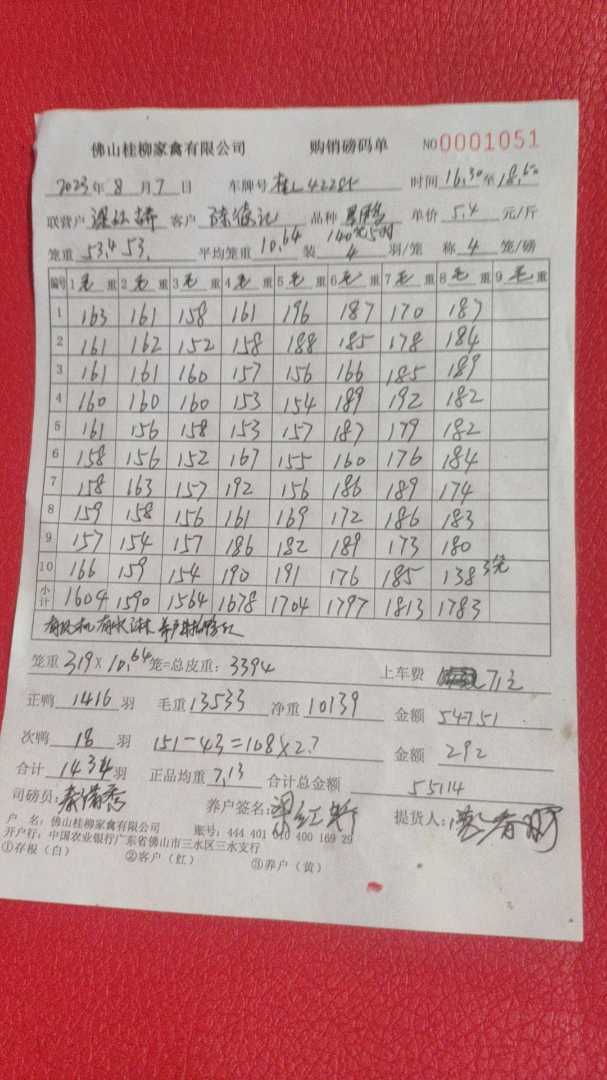 佛山桂柳家禽有限公司 购销磅码单 NO0001051
2023年8月7日 车牌号 时间16.30至18.50
联营户 客户 陈德记 品种 单价5.4元/斤
笼重53.4 53. 平均笼重10.64 装4羽/笼 称4笼/磅
编号 1毛重 2毛重 3毛重 4毛重 5毛重 6毛重 7毛重 8毛重 9毛重
1 163 161 158 161 196 187 170 187
2 161 162 152 158 188 185 178 184
3 161 161 160 157 156 166 185 189
4 160 160 160 153 154 189 192 182
5 161 156 158 153 157 187 179 182
6 158 156 152 167 155 160 176 184
7 158 163 157 192 156 186 189 174
8 159 158 156 161 169 172 186 183
9 157 154 157 186 182 189 173 180
10 166 159 154 190 191 176 185 138 3笼
小计 1604 1590 1564 1678 1704 1797 1813 1783
笼重319×10.64笼=总皮重:3394 上车费 71元
正鸭1416羽 毛重13533 净重10139 金额54751
次鸭18羽 151-43=108×2.7 金额292
合计1434羽 正品均重7.13 合计总金额55114
司磅员: 养户签名: 提货人:
户 名:佛山桂柳家禽有限公司 账号:444 401 010 400 169 29
开户行:中国农业银行广东省佛山市三水区三水支行
①存根(白) ②客户(红) ③养户(黄)